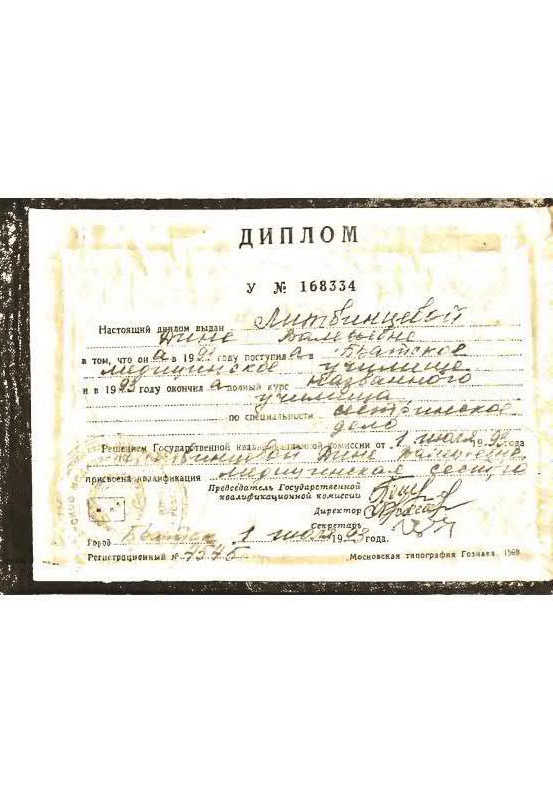 ДИПЛОМ
У № 168334
Настоящий диплом выдан Литвинцевой
Нине Валерьевне
в том, что он а в 199 году поступил а в Братское
медицинское училище
и в 1993 году окончил а полный курс названного
училища
по специальности сестринское
дело
Решением Государственной квалификационной комиссии от 1 июля 1993 года
Нине
присвоена квалификация медицинская сестра
Председатель Государственной
квалификационной комиссии
Директор
Секретарь
Город Братск 1 июля 1993 года.
Регистрационный № 7375
Московская типография Гознака. 1969